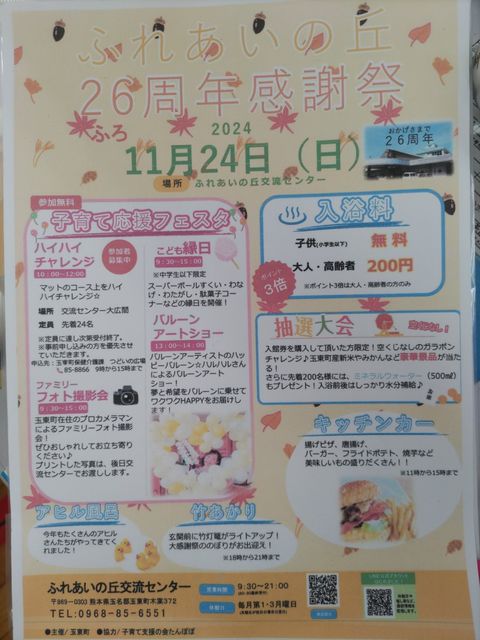 ふれあいの丘
26周年感謝祭
ふろ
2024
11月24日（日）
場所 ふれあいの丘交流センター
おかげさまで
26周年
参加無料
子育て応援フェスタ
ハイハイ
チャレンジ
参加者
募集中
10：00～12:00
マットのコース上をハイ
ハイチャレンジ☆
場所 交流センター大広間
定員 先着24名
※定員に達し次第受付終了。
※事前申し込みの方を優先させ
ていただきます。
申込先：玉東町保健介護課 つどいの広場
85-8866 9時から15時まで
ファミリー
フォト撮影会
9：30～15：00
玉東町在住のプロカメラマン
によるファミリーフォト撮影
会！
ぜひおしゃれしてお立ち寄り
ください♪
プリントした写真は、後日交
流センターでお渡しします。
こども縁日
9：30～15：00
※中学生以下限定
スーパーボールすくい・わな
げ・わたがし・駄菓子コー
ナーなどの縁日を開催！
バルーン
アートショー
13：00～14：00
バルーンアーティストのハッ
ピーバルーン☆ハルハルさん
によるバルーンアート
ショー！
夢と希望をバルーンに乗せて
ワクワクHAPPYをお届けし
ます！
入浴料
子供(小学生以下) 無料
大人・高齢者 200円
※ポイント3倍は大人・高齢者の方のみ
ポイント
3倍
抽選大会
空くじなし！
入館券を購入して頂いた方限定！空くじなしのガラポン
チャレンジ♪玉東町産新米やみかんなど豪華景品が当た
る！
さらに先着200名様には、ミネラルウォーター（500㎖）
もプレゼント！入浴前後はしっかり水分補給♪
キッチンカー
揚げピザ、唐揚げ、
バーガー、フライドポテト、焼芋など
美味しいもの盛りだくさん！！
※11時から15時まで
アヒル風呂
今年もたくさんのアヒル
さんたちがやってきてく
れました！
竹あかり
玄関前に竹灯篭がライトアップ！
大感謝祭ののぼりがお出迎え！
※18時から21時まで
ふれあいの丘交流センター
〒869-0303 熊本県玉名郡玉東町木葉372
TEL:0968-85-6551
営業時間 9:30～21:00
休館日 毎月第1・3月曜日
●主催／玉東町 ●協力／子育て支援の会たんぽぽ